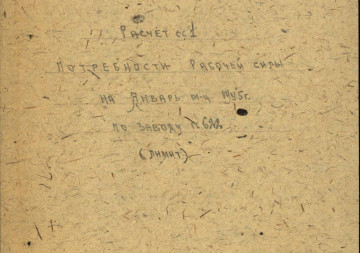 Расчёт сс1
потребности рабочей силы
на Январь м-ц 1945г.
по заводу № 622
(лимит)